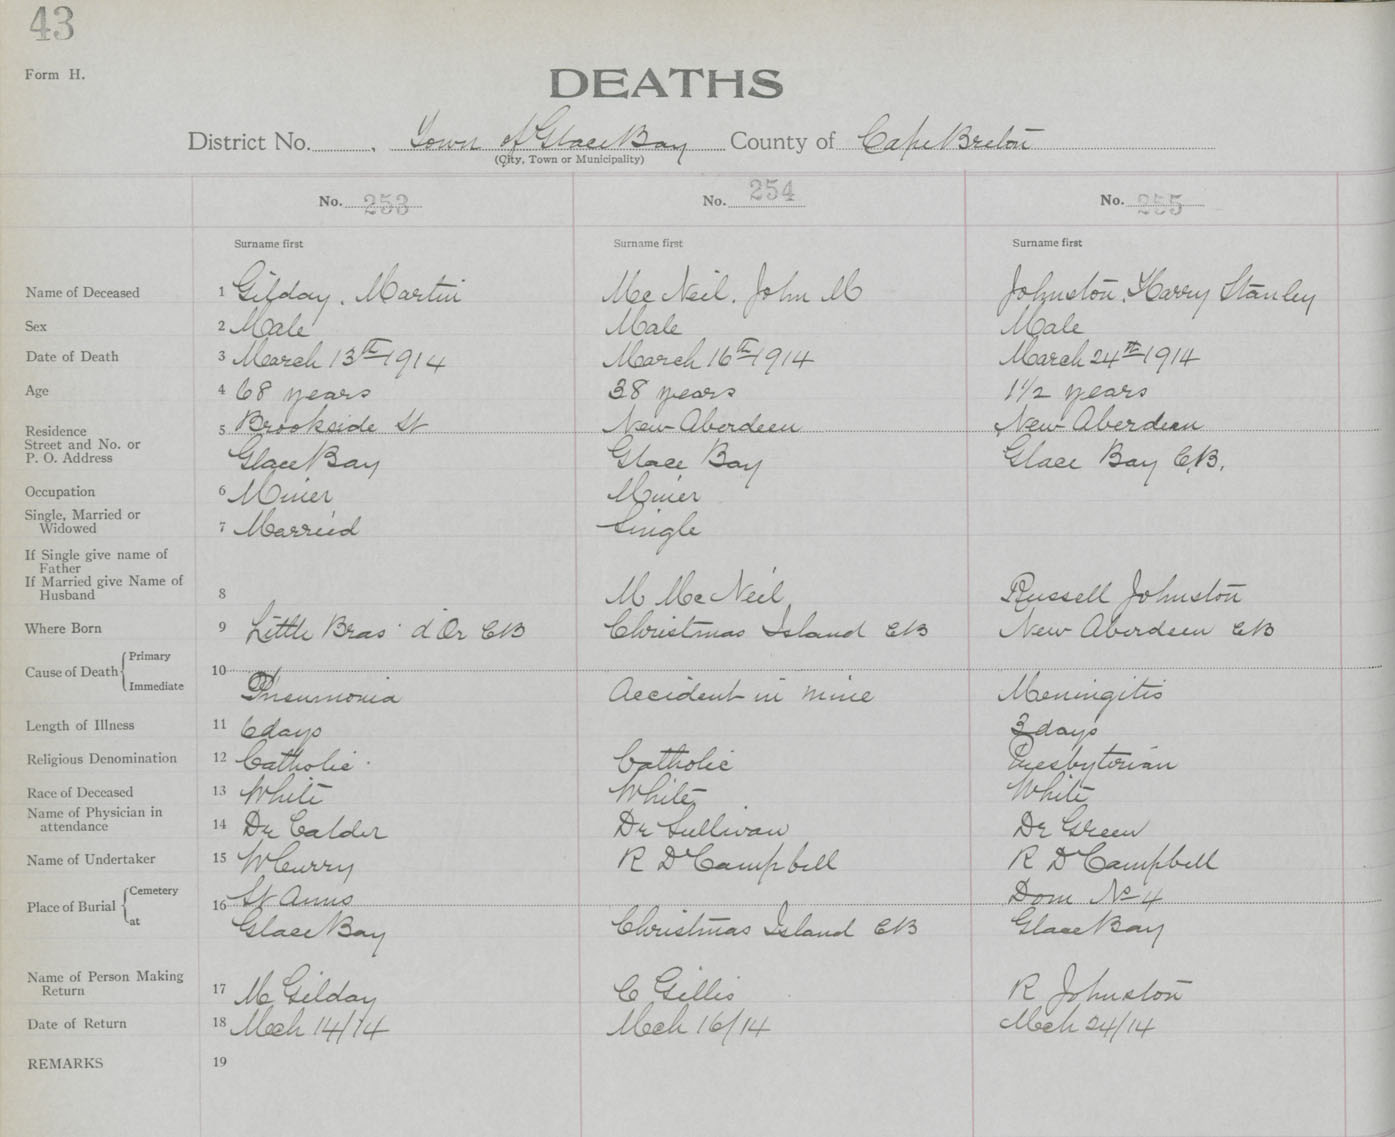 43
Form H.
DEATHS
District No. Town of Glace Bay County of Cape Breton
(City, Town or Municipality)
No. 253 No. 254 No. 255
Surname first Surname first Surname first
Name of Deceased 1 Gilday, Martin Mc Neil, John M Johnston, Harry Stanley
Sex 2 Male Male Male
Date of Death 3 March 13th 1914 March 16th 1914 March 24th 1914
Age 4 68 years 38 years 1 1/2 years
Residence 5 Brookside St New Aberdeen New Aberdeen
Street and No. or
P. O. Address Glace Bay Glace Bay Glace Bay C.B.
Occupation 6 Miner Miner
Single, Married or
Widowed 7 Married Single
If Single give name of
Father
If Married give Name of
Husband 8 M Mc Neil Russell Johnston
Where Born 9 Little Bras d'Or CB Christmas Island CB New Aberdeen CB
Cause of Death Primary 10
Immediate Pneumonia Accident in mine Meningitis
Length of Illness 11 6 days 3 days
Religious Denomination 12 Catholic Catholic Presbyterian
Race of Deceased 13 White White White
Name of Physician in
attendance 14 Dr Calder Dr Sullivan Dr Green
Name of Undertaker 15 W Curry R D Campbell R D Campbell
Place of Burial Cemetery 16 St Anns Dom No 4
at Glace Bay Christmas Island CB Glace Bay
Name of Person Making
Return 17 M Gilday C Gillis R Johnston
Date of Return 18 Mch 14/14 Mch 16/14 Mch 24/14
REMARKS 19